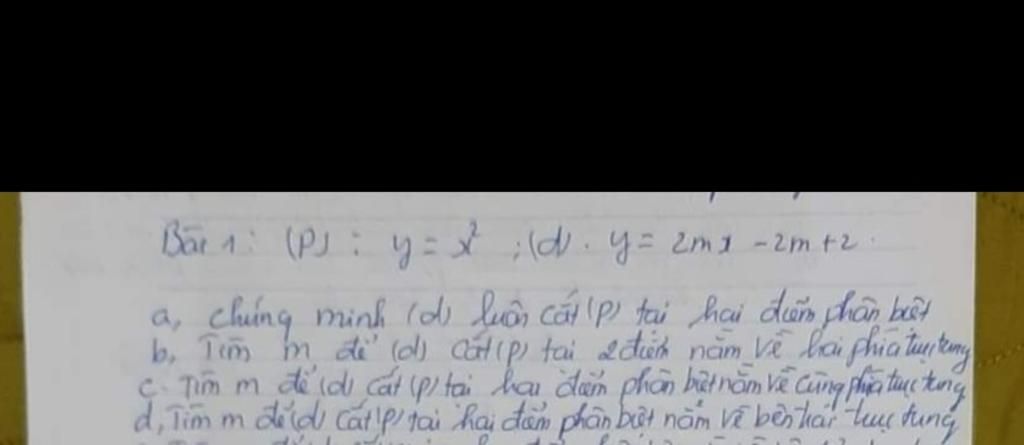 Bài 1: (P): y = x² ; (d). y = 2mx - 2m + 2.
a, chứng minh (d) luôn cắt (P) tại hai điểm phân biệt
b, Tìm m để (d) cắt (P) tại 2 điểm nằm về hai phía trục tung
c. Tìm m để (d) cắt (P) tại hai điểm phân biệt nằm về cùng phía trục tung
d, Tìm m để (d) cắt (P) tại hai điểm phân biệt nằm về bên trái trục tung